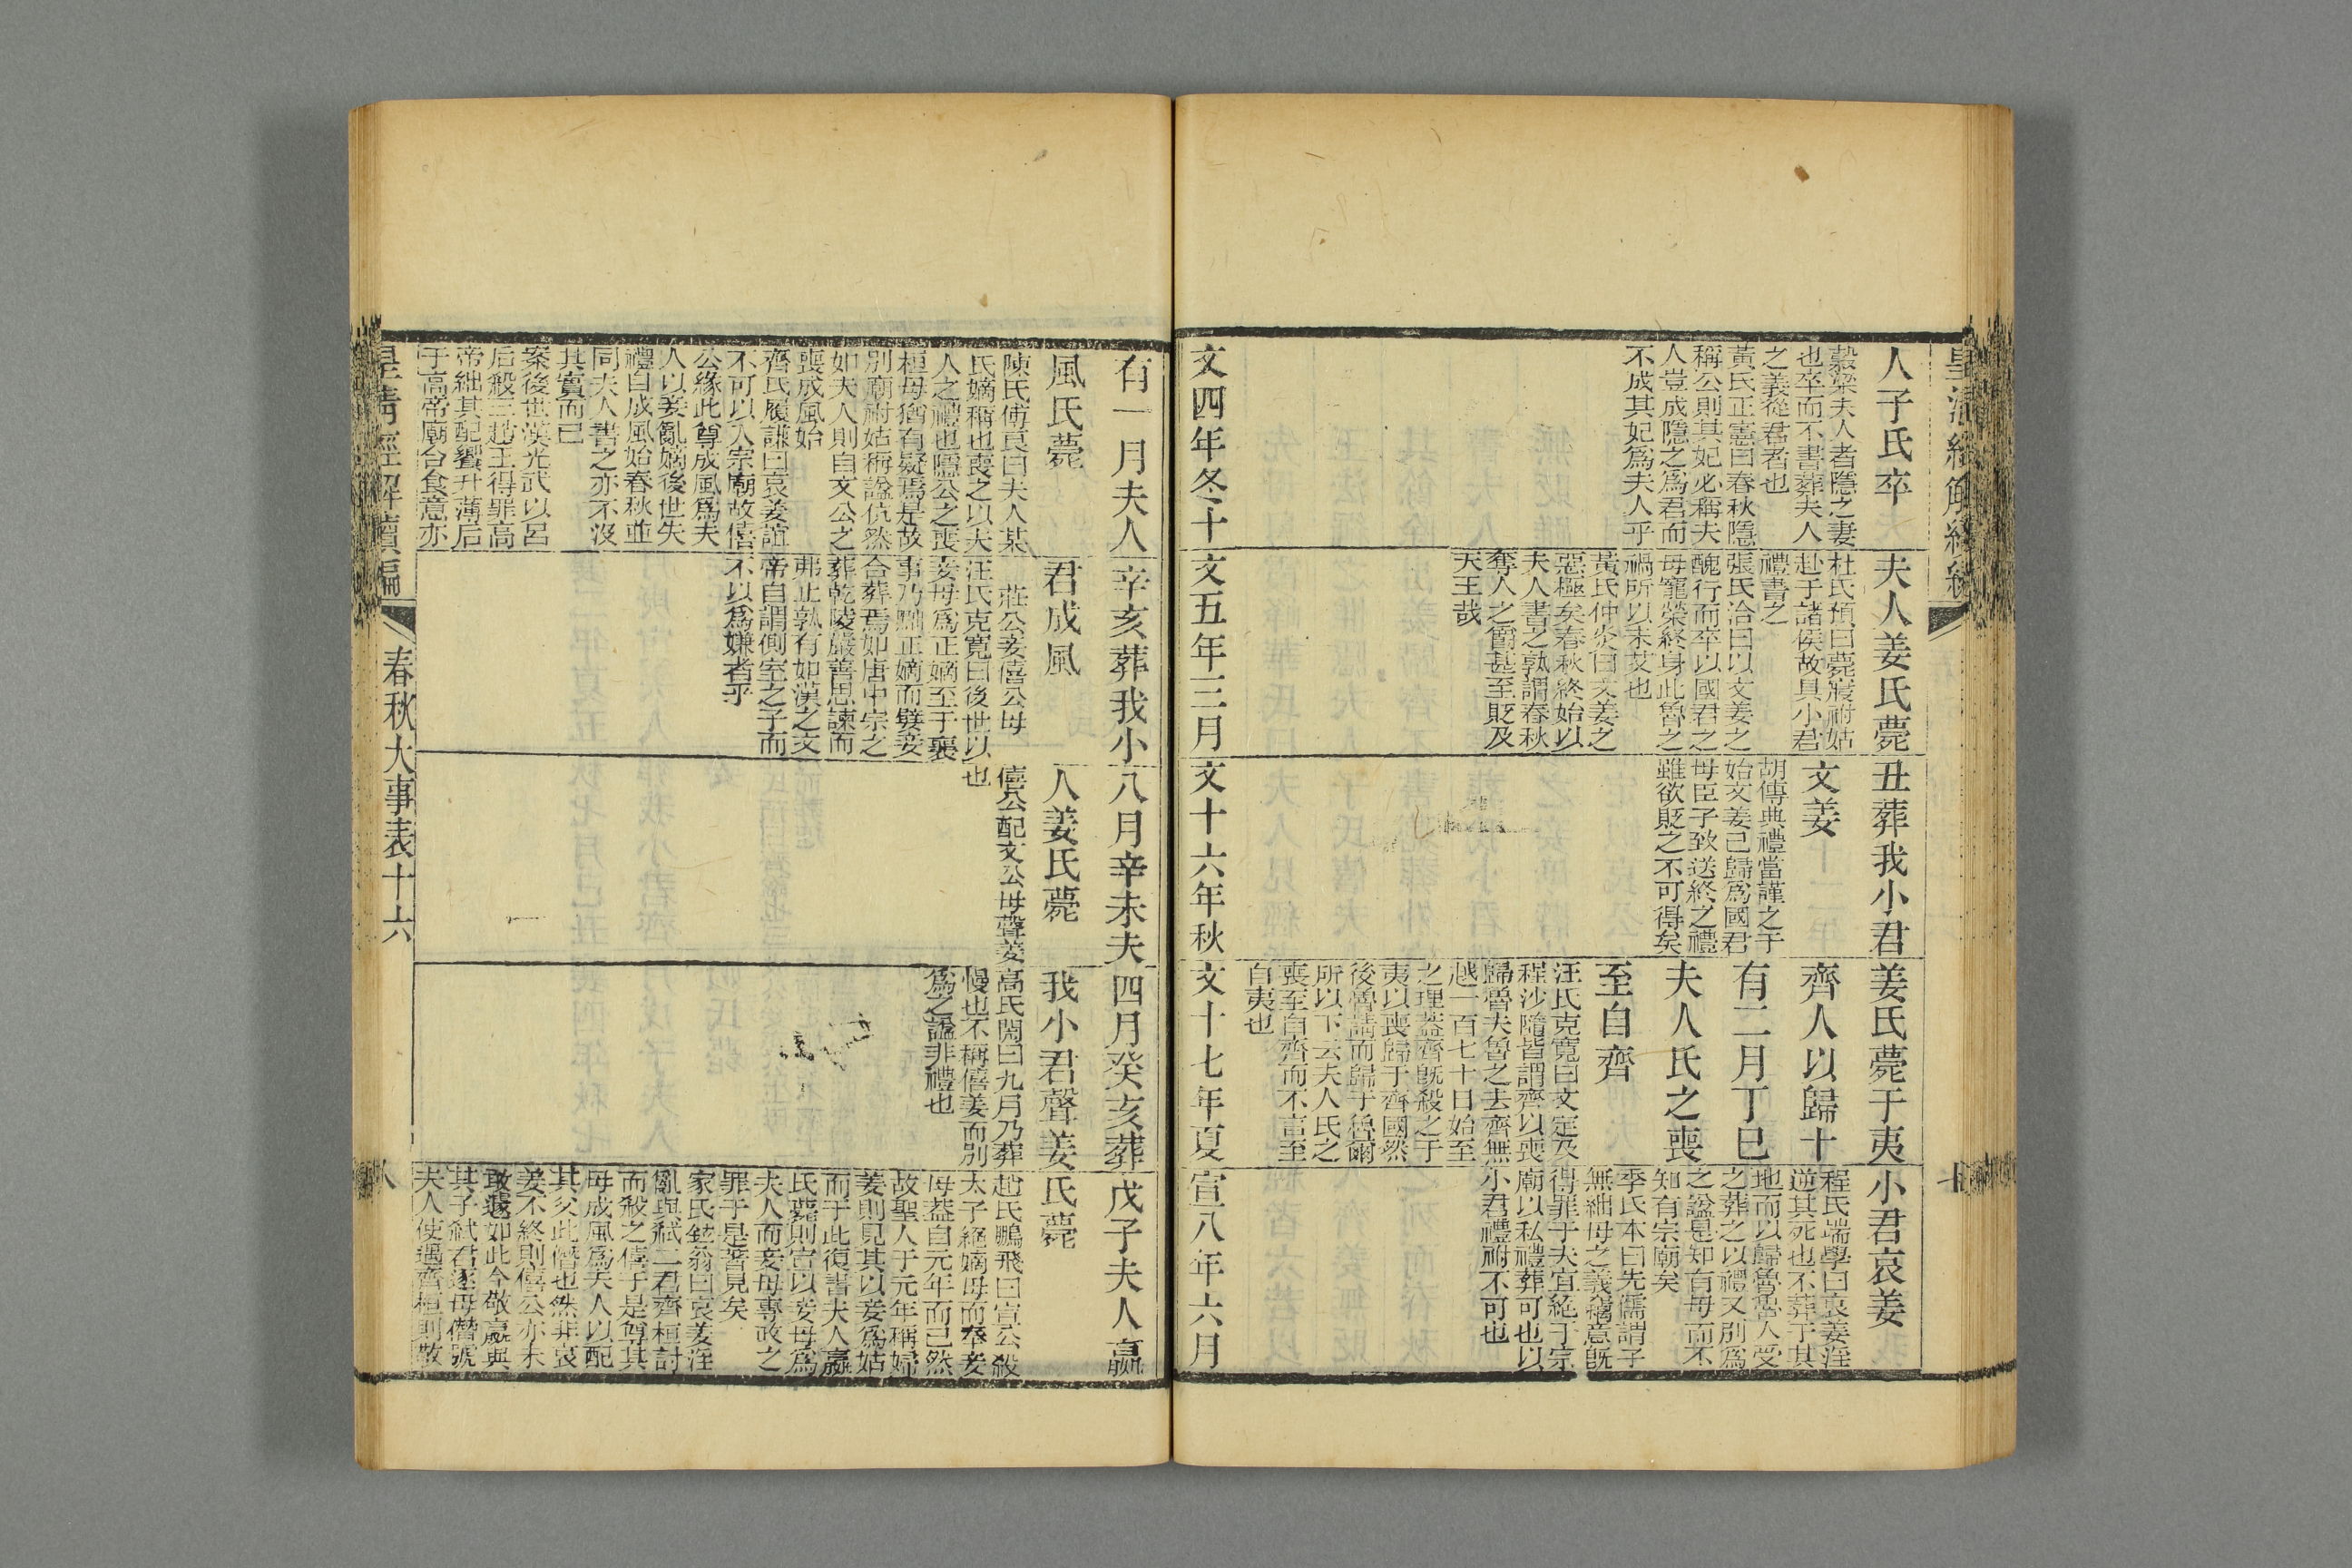 皇清經解續編
七
人子氏卒
穀梁夫人者隱之妻
也卒而不書葬夫人
之義從君者也
黃氏正憲曰春秋隱
稱公則其妃必稱夫
人豈成隱之爲君而
不成其妃爲夫人乎
夫人姜氏薨
杜氏預曰薨寢祔姑
赴于諸侯故具小君
禮書之
張氏洽曰以文姜之
醜行而卒以國君之
母寵榮終身此魯之
禍所以未艾也
黃氏仲炎曰文姜之
惡極矣春秋終始以
夫人書之孰謂春秋
奪人之爵甚至貶及
天王哉
丑葬我小君
文姜
胡傳典禮當謹之于
始文姜已歸爲國君
母臣子致送終之禮
雖欲貶之不可得矣
姜氏薨于夷
齊人以歸十
有二月丁巳
夫人氏之喪
至自齊
汪氏克寬曰文定及
程沙隨皆謂齊以喪
歸魯夫魯之去齊無
越一百七十日始至
之理蓋齊旣殺之于
夷以喪歸于齊國然
後魯請而歸于魯爾
所以下云夫人氏之
喪至自齊而不言至
自夷也
小君哀姜
程氏端學曰哀姜淫
逆其死也不葬于其
地而以歸魯魯人受
之葬之以禮又別爲
之諡是知有母而不
知有宗廟矣
季氏本曰先儒謂子
無絀母之義竊意旣
得罪于夫宜絕于宗
廟以私禮葬可也以
小君禮祔不可也
文四年冬十
文五年三月
文十六年秋
文十七年夏
宣八年六月
有一月夫人
風氏薨
陳氏傅良曰夫人某
氏嫡稱也喪之以夫
人之禮也隱公之喪
桓母猶有疑焉是故
別廟祔姑稱諡伉然
如夫人則自文公之
喪成風始
齊氏履謙曰哀姜誼
不可以入宗廟故僖
公緣此尊成風爲夫
人以妾亂嫡後世失
禮自成風始春秋並
同夫人書之亦不沒
其實而已
案後世漢光武以呂
后殺三趙王得罪高
帝絀其配饗升薄后
于高帝廟合食意亦
辛亥葬我小
君成風
莊公妾僖公母
汪氏克寬曰後世以
妾母爲正嫡至于喪
事乃黜正嫡而孽妾
合葬焉如唐中宗之
葬乾陵嚴善思諫而
弗止孰有如漢之文
帝自謂側室之子而
不以爲嫌者乎
八月辛未夫
人姜氏薨
僖公配文公母聲姜
也
四月癸亥葬
我小君聲姜
高氏閌曰九月乃葬
慢也不稱僖姜而別
爲之諡非禮也
戊子夫人嬴
氏薨
趙氏鵬飛曰宣公殺
太子絕嫡母而奉妾
母蓋自元年而已然
故聖人于元年稱婦
姜則見其以妾爲姑
而于此復書夫人嬴
氏薨則宣以妾母爲
夫人而妾母專政之
罪于是著見矣
家氏鉉翁曰哀姜淫
亂與弒二君齊桓討
而殺之僖于是尊其
母成風爲夫人以配
其父此僭也然非哀
姜不終則僖公亦未
敢遽如此今敬嬴與
其子弒君逐母僭號
夫人使遇齊桓則敬
皇清經解續編
春秋大事表十六
八